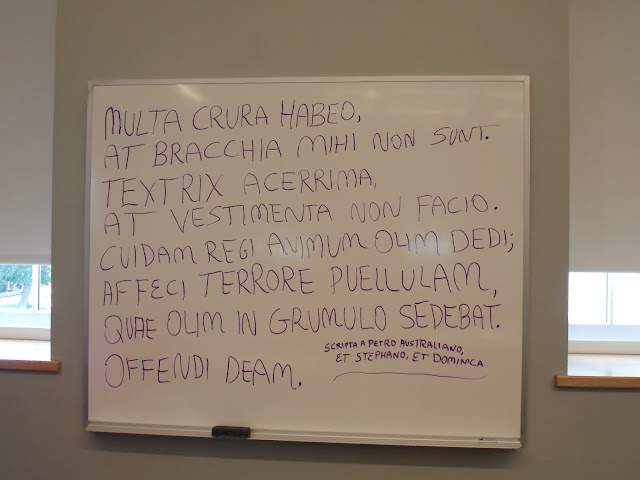 MULTA CRURA HABEO,
AT BRACCHIA MIHI NON SUNT.
TEXTRIX ACERRIMA,
AT VESTIMENTA NON FACIO.
CUIDAM REGI ANIMUM OLIM DEDI;
AFFECI TERRORE PUELLULAM,
QUAE OLIM IN GRUMULO SEDEBAT.
OFFENDI DEAM.
SCRIPTA A PETRO AUSTRALIANO,
ET STEPHANO, ET DOMINICA